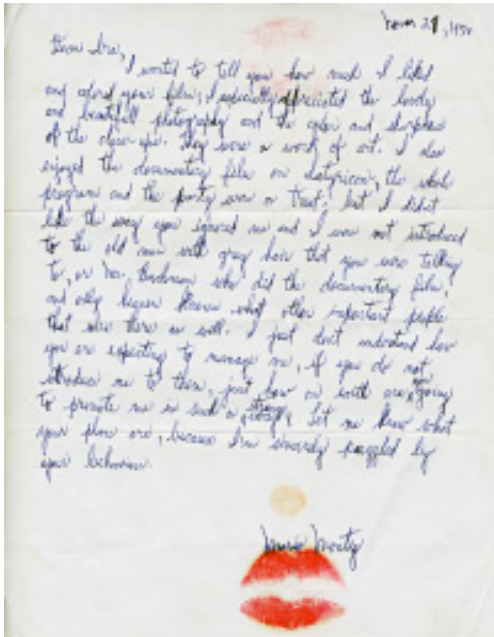 I wanted to tell you how much I liked
and your film; I especially appreciated the lovely
and beautiful photography and the color and
of the close-ups. They were a work of art. I also
enjoyed the documentary film on Satyricon, the whole
program and the party were a treat; but I didn't
like the way you ignored me and I was not introduced
to the old man with gray hair that you were talking
to, or Mr. who did the documentary film,
and only knows what other important people
that were there as well. I just don't understand how
you are expecting to manage me, if you do not
introduce me to them, just how on earth are going
to promote me in such a, let me know what
your plans are, because I'm sincerely puzzled by
your behavior.